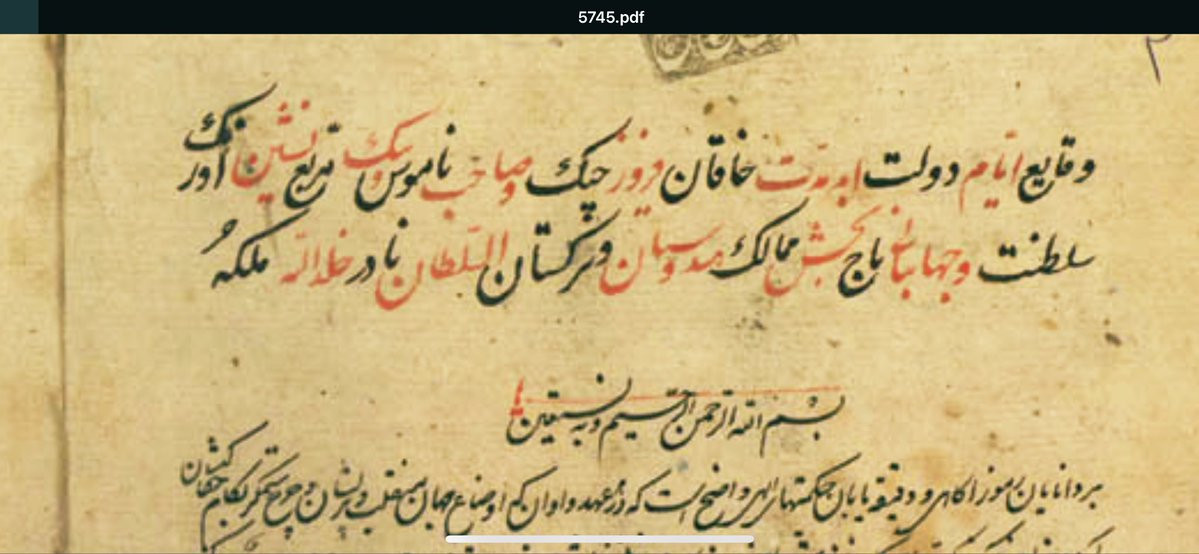 5745.pdf
وقایع ایام دولت ابد مدت خاقان فیروز جنک وصاحب ناموس وننک مربع نشین اورنک
سلطنت وجهانبانی تاج بخش ممالک هندوستان وترکستان السلطان نادر خلدالله ملکه
بسم الله الرحمن الرحیم وبه نستعین
بر دانایان رموز آکاهی و دقیقه یابان حکمتهای الهی واضح است که در هر عهد واوان که اوضاع جهان منقلب وپریشان وچرخ ستمکر بکام